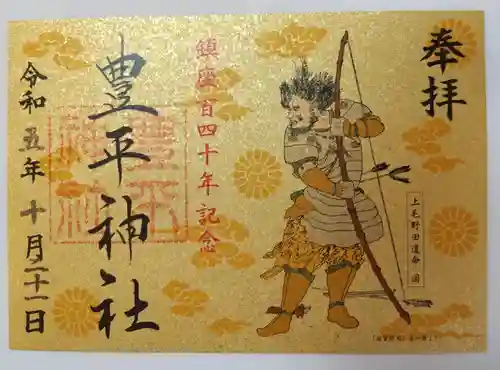 奉拝
上毛野田道命 図
鎮座百四十年記念
豊平神社
豊平神社
令和五年十月二十一日